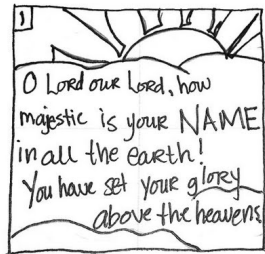 1
O Lord our Lord, how
majestic is your NAME
in all the earth!
You have set your glory
above the heavens